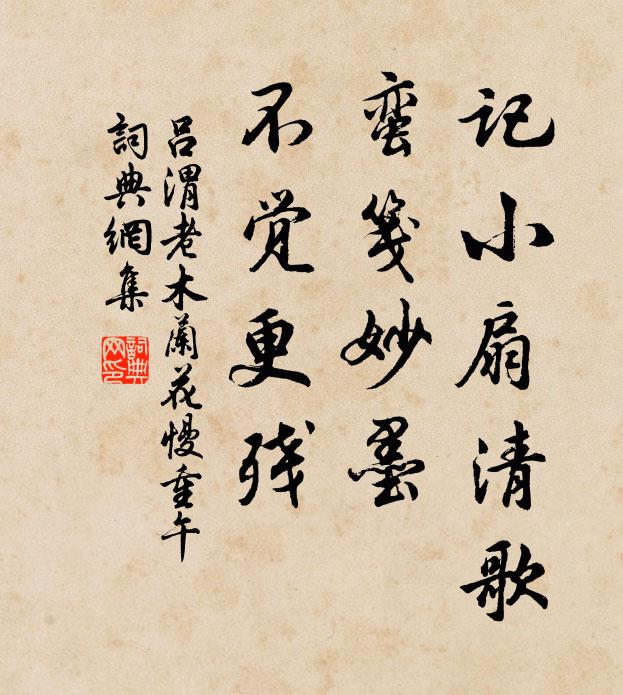 记小扇清歌
蛮笺妙墨
不觉更残
吕渭老木蘭花慢重午
詞典網集
詞典
网印